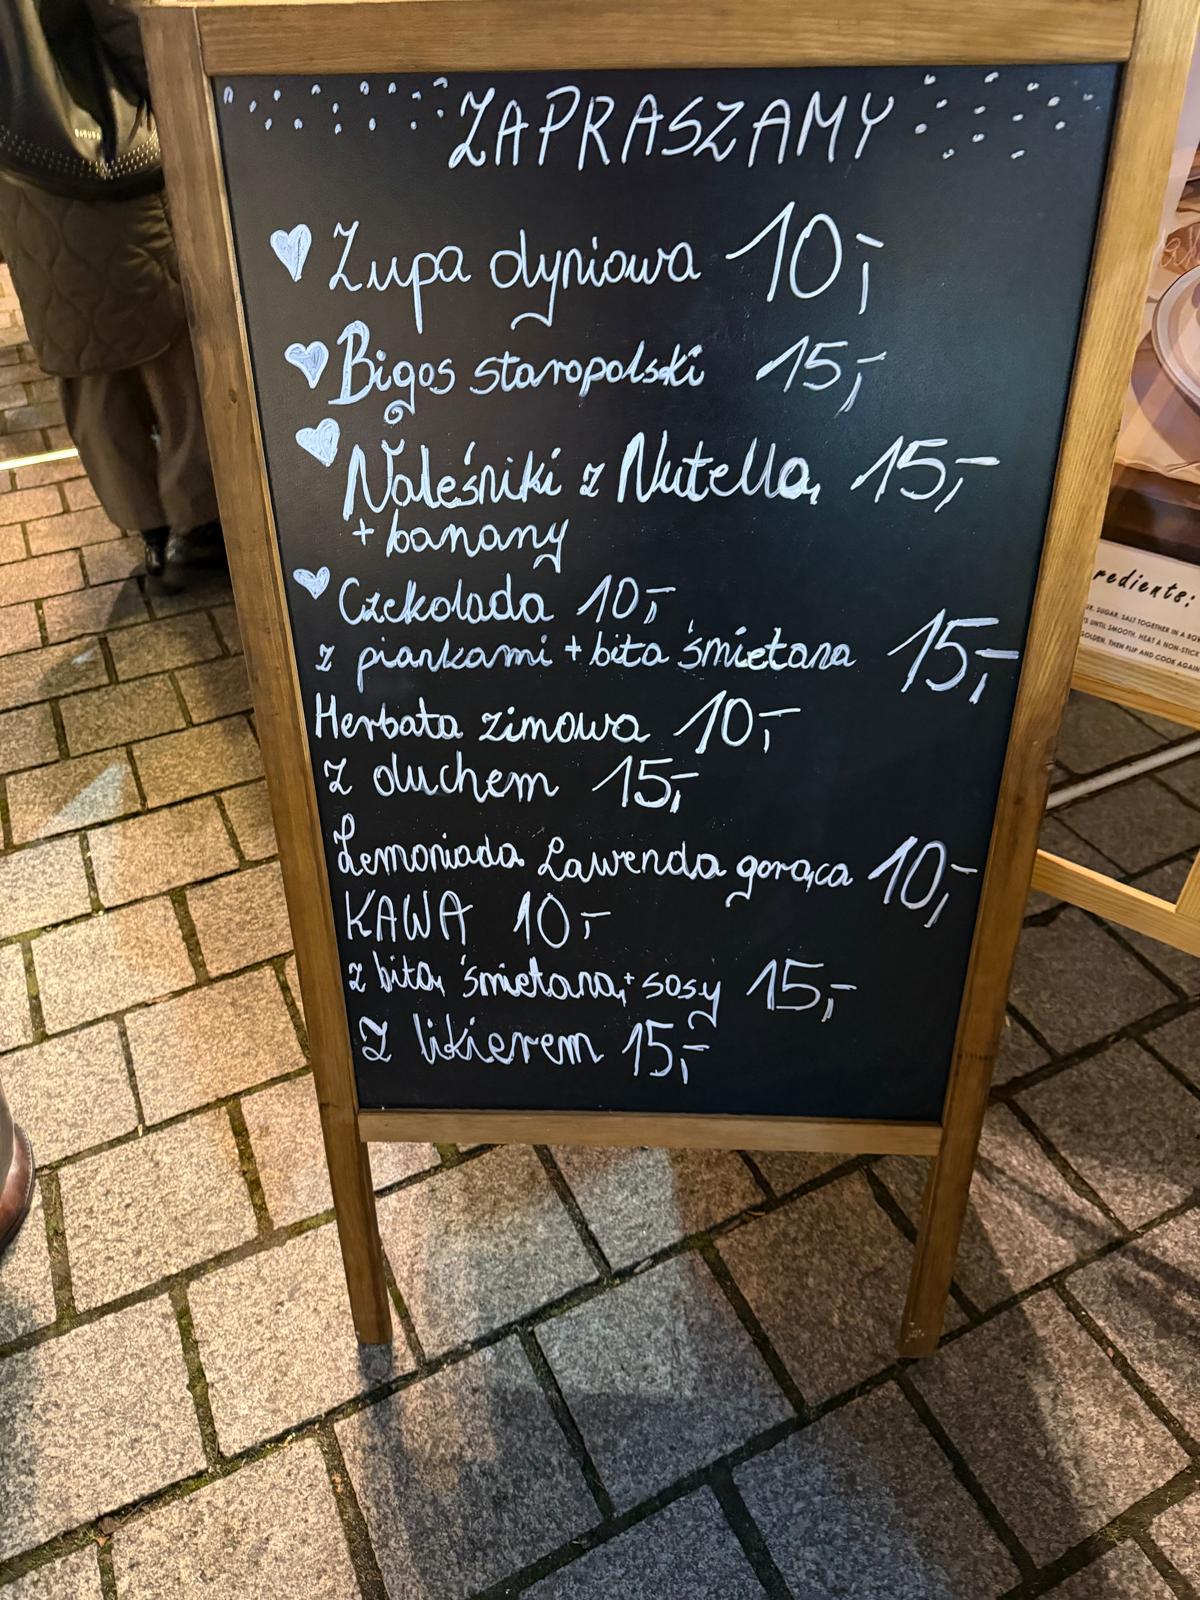 ZAPRASZAMY
Zupa dyniowa 10,-
Bigos staropolski 15,-
Naleśniki z Nutellą 15,-
+ banany
Czekolada 10,-
z piankami + bita śmietana 15,-
Herbata zimowa 10,-
z duchem 15,-
Lemoniada Lawenda gorąca 10,-
KAWA 10,-
z bitą śmietaną + sosy 15,-
z likierem 15,-
redients:
SUGAR, SALT TOGETHER IN A
UNTIL SMOOTH. HEAT A NON-STICK
GOLDEN, THEN FLIP AND COOK AGAIN